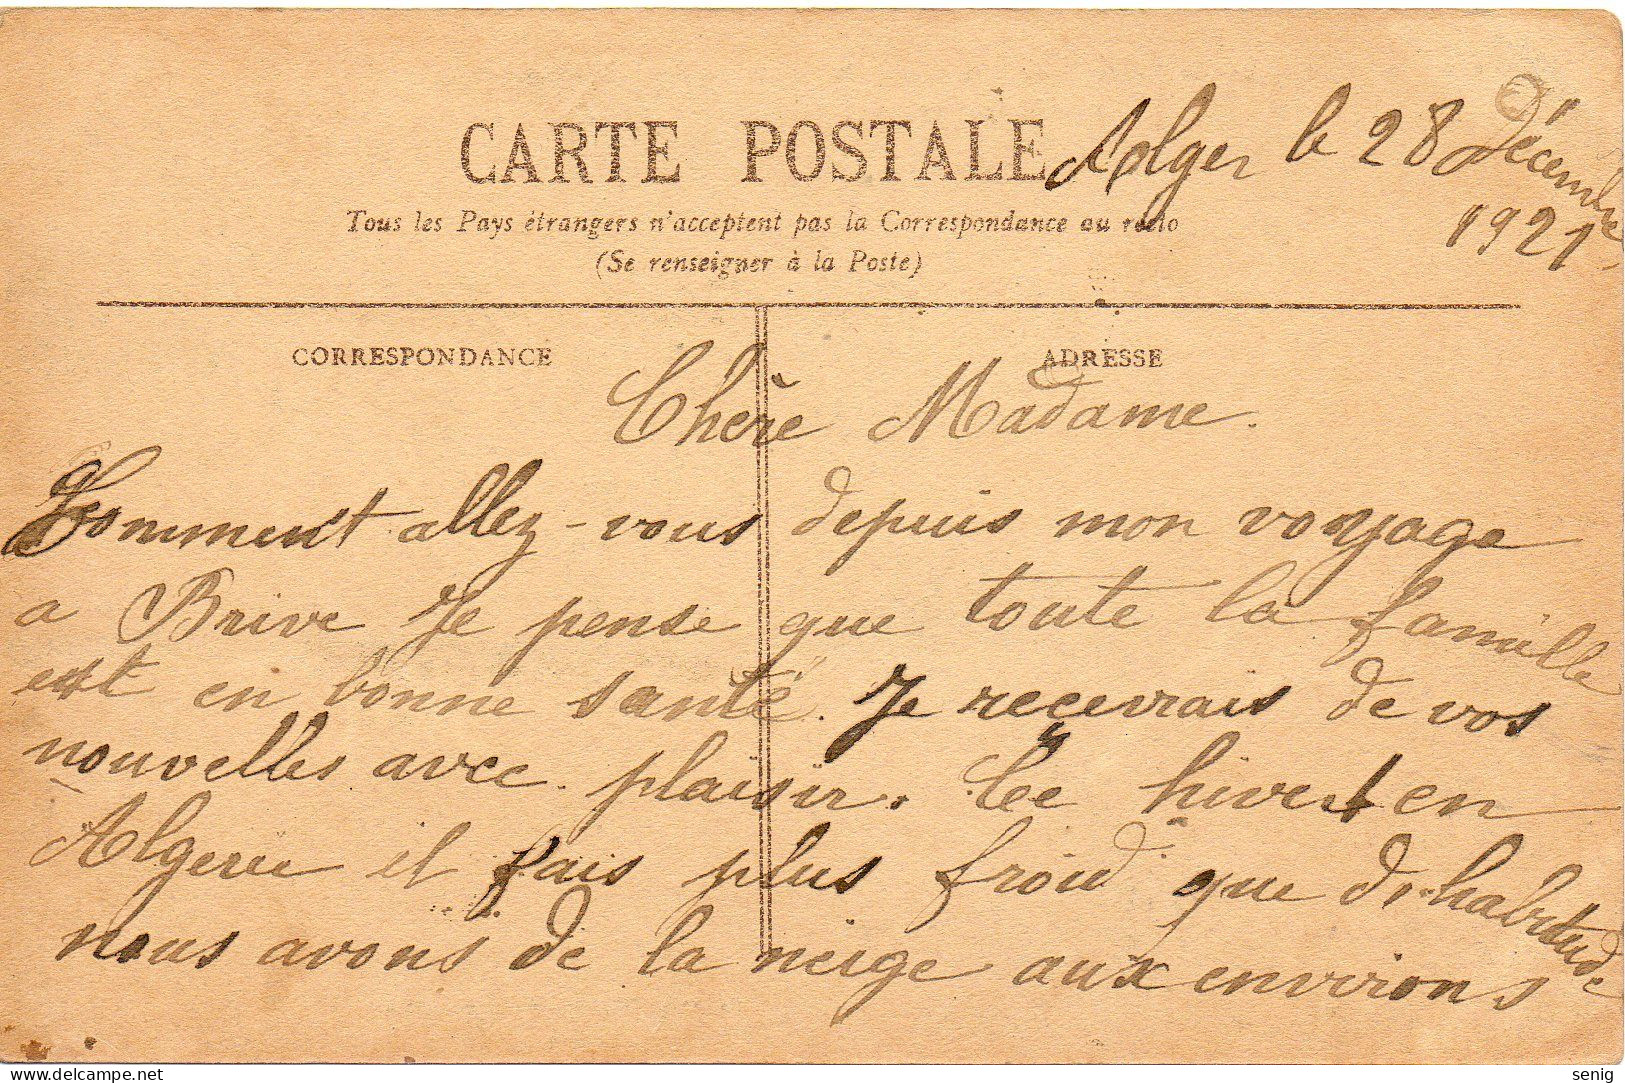 CARTE POSTALE
Alger le 28 Décembre
1921
Tous les Pays étrangers n'acceptent pas la Correspondance au recto
(Se renseigner à la Poste)
CORRESPONDANCE
ADRESSE
Chère Madame.
Comment allez-vous depuis mon voyage
a Brive Je pense que toute la famille
est en bonne santé. Je recevrais de vos
nouvelles avec plaisir. Cet hiver en
Algerie il fais plus froid que d'habitude
nous avons de la neige aux environs
www.delcampe.net
senig